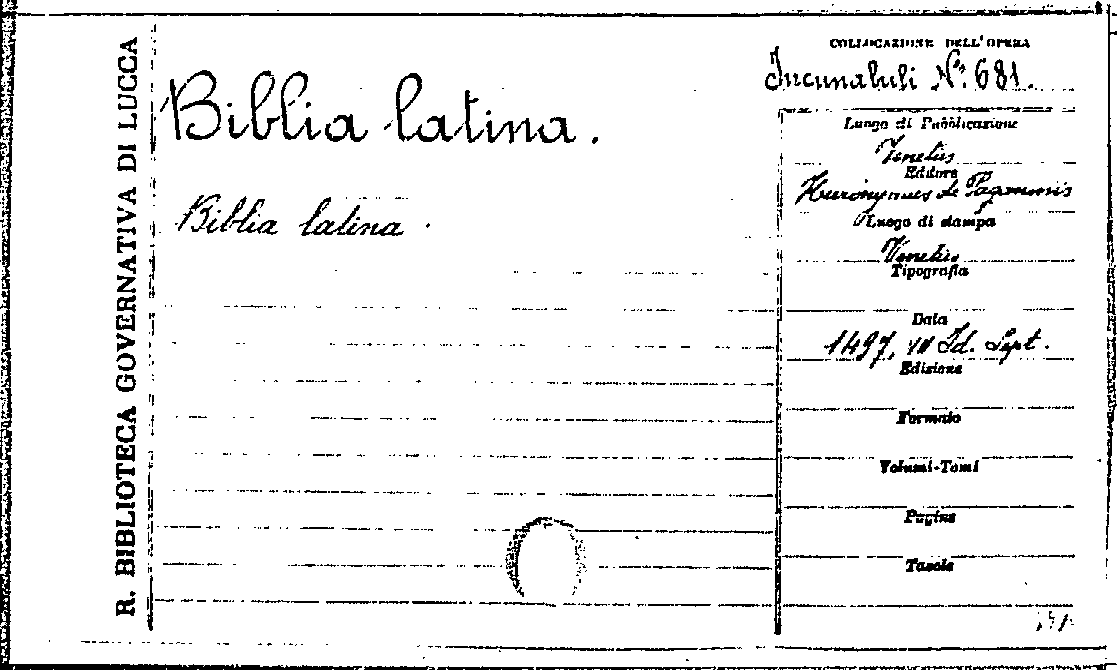 R. BIBLIOTECA GOVERNATIVA DI LUCCA
Biblia latina.
Biblia latina.
COLLOCAZIONE DELL'OPERA
Incunabuli N.° 681.
Luogo di Pubblicazione
Venetiis
Editore
Hieronymus de Paganinis
Luogo di stampa
Venetiis
Tipografia
Data
1497, VII Id. Sept.
Edizione
Formato
Volumi-Tomi
Pagine
Tavole